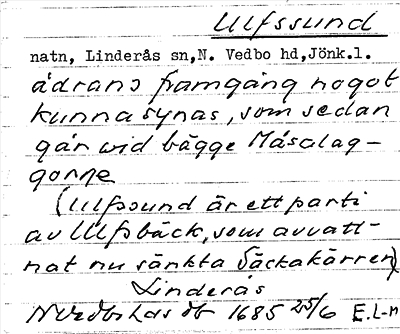 Ulfssund
natn, Linderås sn,N. Vedbo hd,Jönk.l.
ådrans framgång nogot
kunna synas, som sedan
går wid bägge Måsalag-
gorne
(Ulfssund är ett parti
av Ulfsbäck, som avvatt-
nat nu sänkta Säckakärren)
Linderås
N Vedbo häs db 1685 25/6 E.L-n